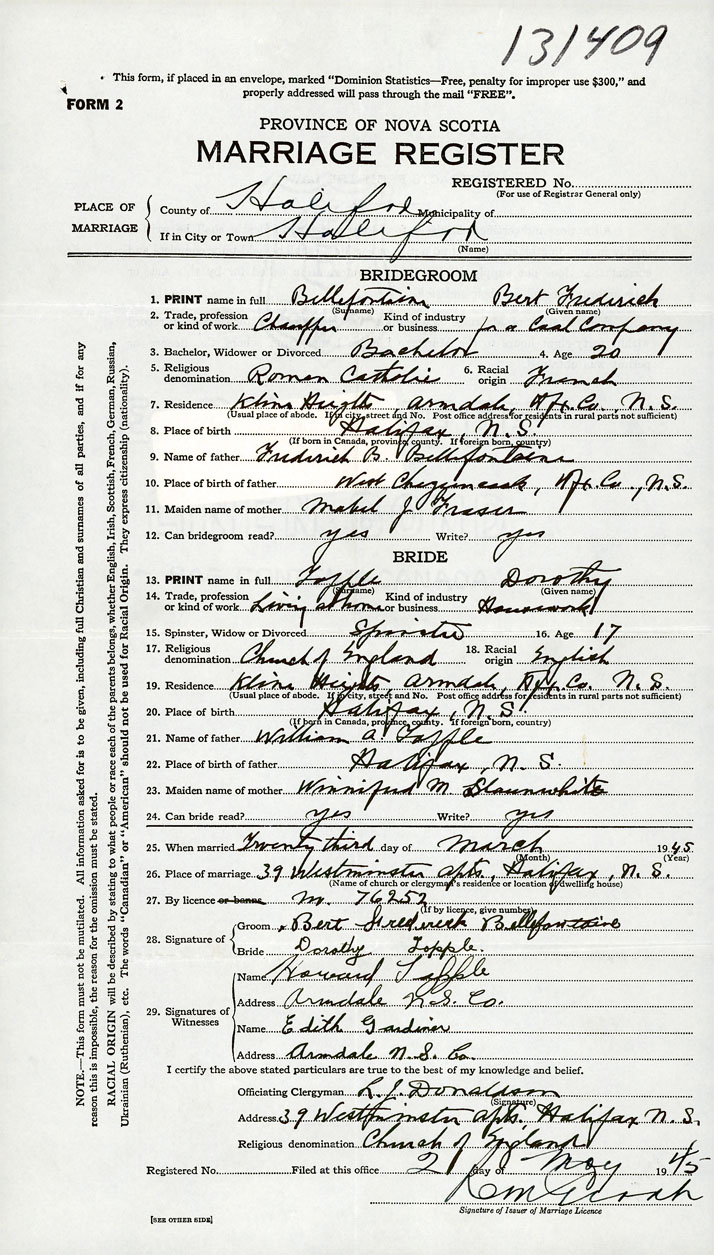 131409
This form, if placed in an envelope, marked "Dominion Statistics—Free, penalty for improper use $300," and
properly addressed will pass through the mail "FREE".
FORM 2
PROVINCE OF NOVA SCOTIA
MARRIAGE REGISTER
REGISTERED No.
(For use of Registrar General only)
PLACE OF MARRIAGE
County of Halifax Municipality of
If in City or Town Halifax
(Name)
BRIDEGROOM
1. PRINT name in full Bellefontaine Bert Frederich
(Surname) (Given name)
2. Trade, profession or kind of work Chauffer Kind of industry or business for a Coal Company
3. Bachelor, Widower or Divorced Bachelor 4. Age 20
5. Religious denomination Roman Catholic 6. Racial origin French
7. Residence Kline Heights, Armdale, Hfx. Co. N.S.
(Usual place of abode. If in city, street and No. Post office address for residents in rural parts not sufficient)
8. Place of birth Halifax, N.S.
(If born in Canada, province, county. If foreign born, country)
9. Name of father Frederich B. Bellefontaine
10. Place of birth of father West Chezzetcook, Hfx. Co., N.S.
11. Maiden name of mother Mabel J Fraser
12. Can bridegroom read? yes Write? yes
BRIDE
13. PRINT name in full Topple Dorothy
(Surname) (Given name)
14. Trade, profession or kind of work Living at home Kind of industry or business Housework
15. Spinster, Widow or Divorced Spinster 16. Age 17
17. Religious denomination Church of England 18. Racial origin English
19. Residence Kline Heights Armdale, Hfx. Co. N.S.
(Usual place of abode. If in city, street and No. Post office address for residents in rural parts not sufficient)
20. Place of birth Halifax, N.S.
(If born in Canada, province, county. If foreign born, country)
21. Name of father William A. Topple
22. Place of birth of father Halifax, N.S.
23. Maiden name of mother Winnifred M. Slaunwhite
24. Can bride read? yes Write? yes
25. When married Twenty third day of March 1945
(Month) (Year)
26. Place of marriage 39 Westminster Apts., Halifax, N.S.
(Name of church or clergyman's residence or location of dwelling house)
27. By licence or banns M. 76252
(If by licence, give number)
28. Signature of
Groom Bert Frederick Bellefontaine
Bride Dorothy Topple.
29. Signatures of Witnesses
Name Howard Topple
Address Armdale N.S. Co.
Name Edith Gardiner
Address Armdale N.S. Co.
I certify the above stated particulars are true to the best of my knowledge and belief.
Officiating Clergyman L. J. Donaldson
(Signature)
Address 39 Westminster Apts. Halifax N.S.
Religious denomination Church of England
Registered No. Filed at this office 2 day of May 1945
Signature of Issuer of Marriage Licence
[SEE OTHER SIDE]
NOTE.—This form must not be mutilated. All information asked for is to be given, including full Christian and surnames of all parties, and if for any
reason this is impossible, the reason for the omission must be stated.
RACIAL ORIGIN will be described by stating to what people or race each of the parents belongs, whether English, Irish, Scottish, French, German, Russian,
Ukrainian (Ruthenian), etc. The words "Canadian" or "American" should not be used for Racial Origin. They express citizenship (nationality).